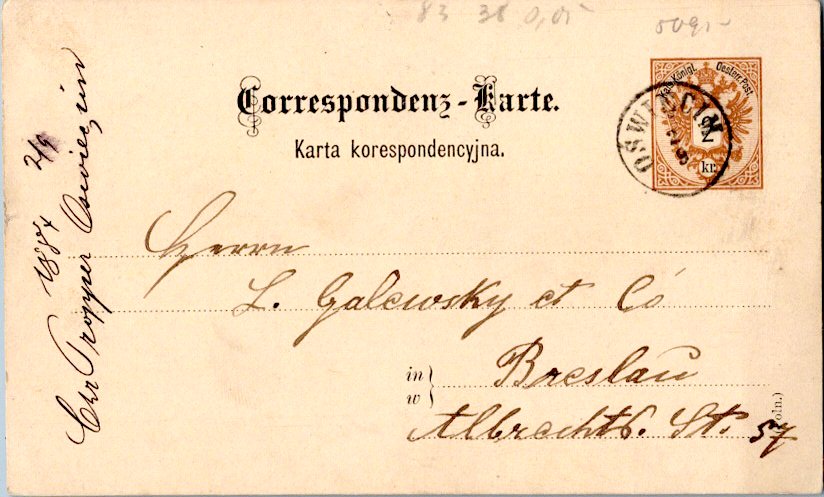 83 38 0,05
50gr-
Correspondenz-Karte.
Karta korespondencyjna.
Kais. Königl. Oesterr. Post.
2
kr.
OŚWIĘCIM
Herrn
L. Galewsky et Có
in
w
Breslau
Albrechts. St. 57
(Poln.)
1884 2/9
Propper Oswieczim